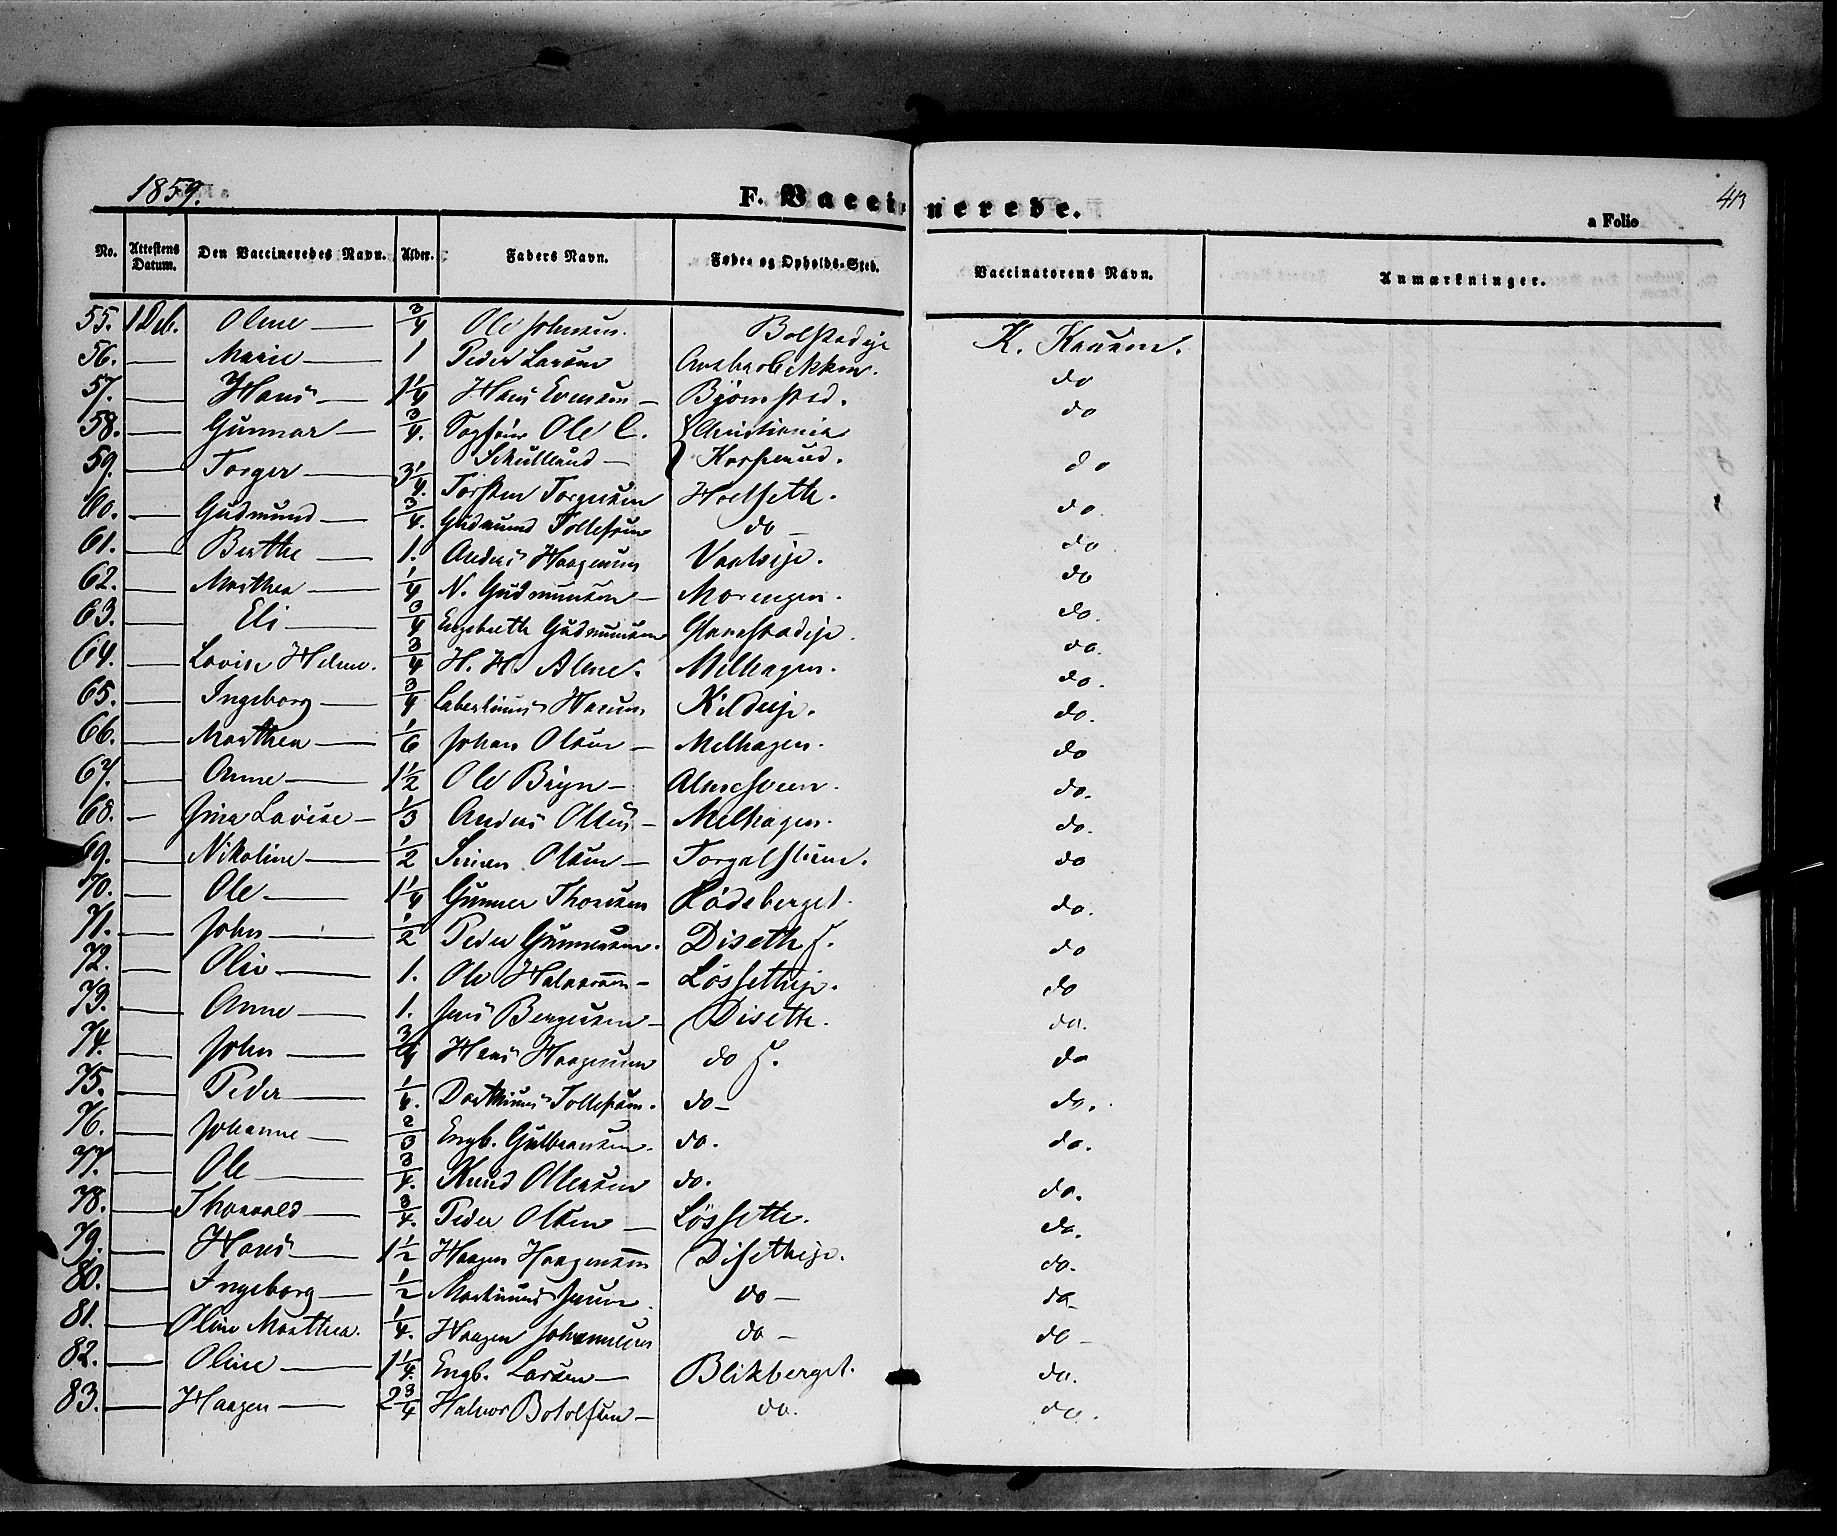 1859.
F. Vaccinerede.
413
a Folio
No. Attestens Datum. Den Vaccineredes Navn. Alder. Faders Navn. Føde- og Opholds-Sted. Vaccinatorens Navn. Anmærkninger.
55. 1 Dcb. Oline — 3/4 Ole Johnsen. Bolstadeje
56. — Marie — 1 Peder Larsen K. Knusen.
57. — Hans — 1 1/4 Hans Evensen — Bjørnstad. do
58. — Gunnar — 3/4. Ole C. Christiania do
Skullerud —
59. — Torger — 3 1/4. Torsten Torgersen Hoelseth. do
60. — Gudmund — 3/4. Gudmund Tollefsen do — do.
61. — Berthe — 1. Anders Haagensen do
62. — Marthea — 1/4 N. Gudmundsen — Morengen. do
63. — Eli — 3/4 Engebreth Gudmundsen do.
64. — Lovise Helene. 3/4 H. H. Alme. Melhagen. do.
65. — Ingeborg — 3/4 Hansen Kildeje. do.
66. — Marthea — 1/6 Johan Olsen — Melhagen. do.
67. — Anne — 1 1/2 Ole Bryn — Almesveen. do
68. — Jina Lovise — 1/3 Anders Olsen — Melhagen. do.
69. — Nikoline — 1/2 Simen Olsen — do.
70. — Ole — 1 1/4 Gunner Thoresen Lødeberget. do
71. — John — 1/2 Peder Gunnersen. Diseth f. do.
72. — Oliv — 1. Ole Halvorsen — Løssetheje. do
73. — Anne — 1. Jens Bergersen — Diseth. do
74. — John — 3/4 Hans Haagensen do f. do.
75. — Peder — 1/4. Dorthinus Tollefsen. do — do
76. — Johanne — 2/3 Engb. Gulbransen. do. do.
77. — Ole — 3/4. Knud Ottersen do. do.
78. — Thorvald — 3/4. Peder Olsen — Løsseth. do.
79. — Hans — 1 1/2 Haagen Haagensen Disetheje. do.
80. — Ingeborg — 1/2 Martinus Jensen. do — do.
81. — Oline Marthea. 1/4. Haagen Johannesen do — do —
82. — Oline — 1 1/4. Engb. Larsen — Blikberget. do.
83. — Haagen — 2 3/4 Halvor Botolfsen — do. do.